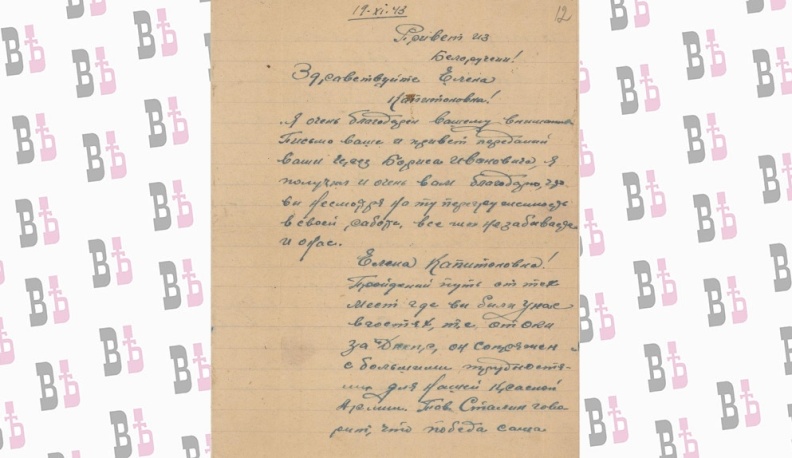 19.XI.43
12
Привет из
Белоруссии!
Здравствуйте Елена
Капитоновна!
Я очень благодарен вашему внимани
Письмо ваше и привет переданый
вами через Бориса Ивановича, я
получил и очень вам благодарю, что
ви несмотря на ту перегруженность
в своей работе, все не забываете
и о нас.
Елена Капитоновна!
Пройденый путь от тех
мест где ви били у нас
в гостях, т.е. от Оки
за Днепр, он сопряжен
с большими трудностя-
ми для нашей Красной
Армии. Тов. Сталин гово
рит, что победа сама